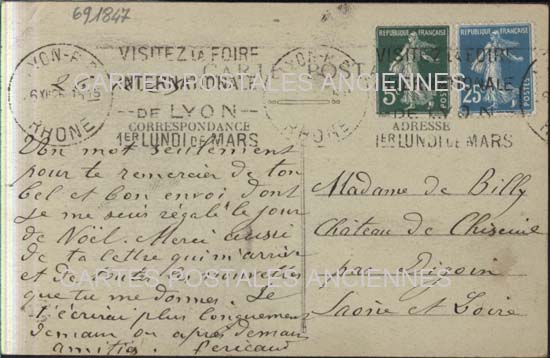 691847
LYON-R.P.
RHONE
VISITEZ LA FOIRE
INTERNATIONALE
DE LYON
1ER LUNDI DE MARS
CARTE POSTALE
CORRESPONDANCE
ADRESSE
REPUBLIQUE FRANÇAISE
5
POSTES
REPUBLIQUE FRANÇAISE
25
POSTES
VISITEZ LA FOIRE
DE LYON
1ER LUNDI DE MARS
Un mot seulement
pour te remercier de ton
bel et bon envoi dont
je me suis régalé le jour
de Noël. Merci aussi
de ta lettre qui m'arrive
et de toutes les nouvelles
que tu me donnes. Je
t'écrirai plus longuement
demain ou après demain
amitiés
Madame de Billy
Château de Chiseuil
par Digoin
Saône et Loire
CARTES POSTALES ANCIENNES
CARTES POSTALES ANCIENNES